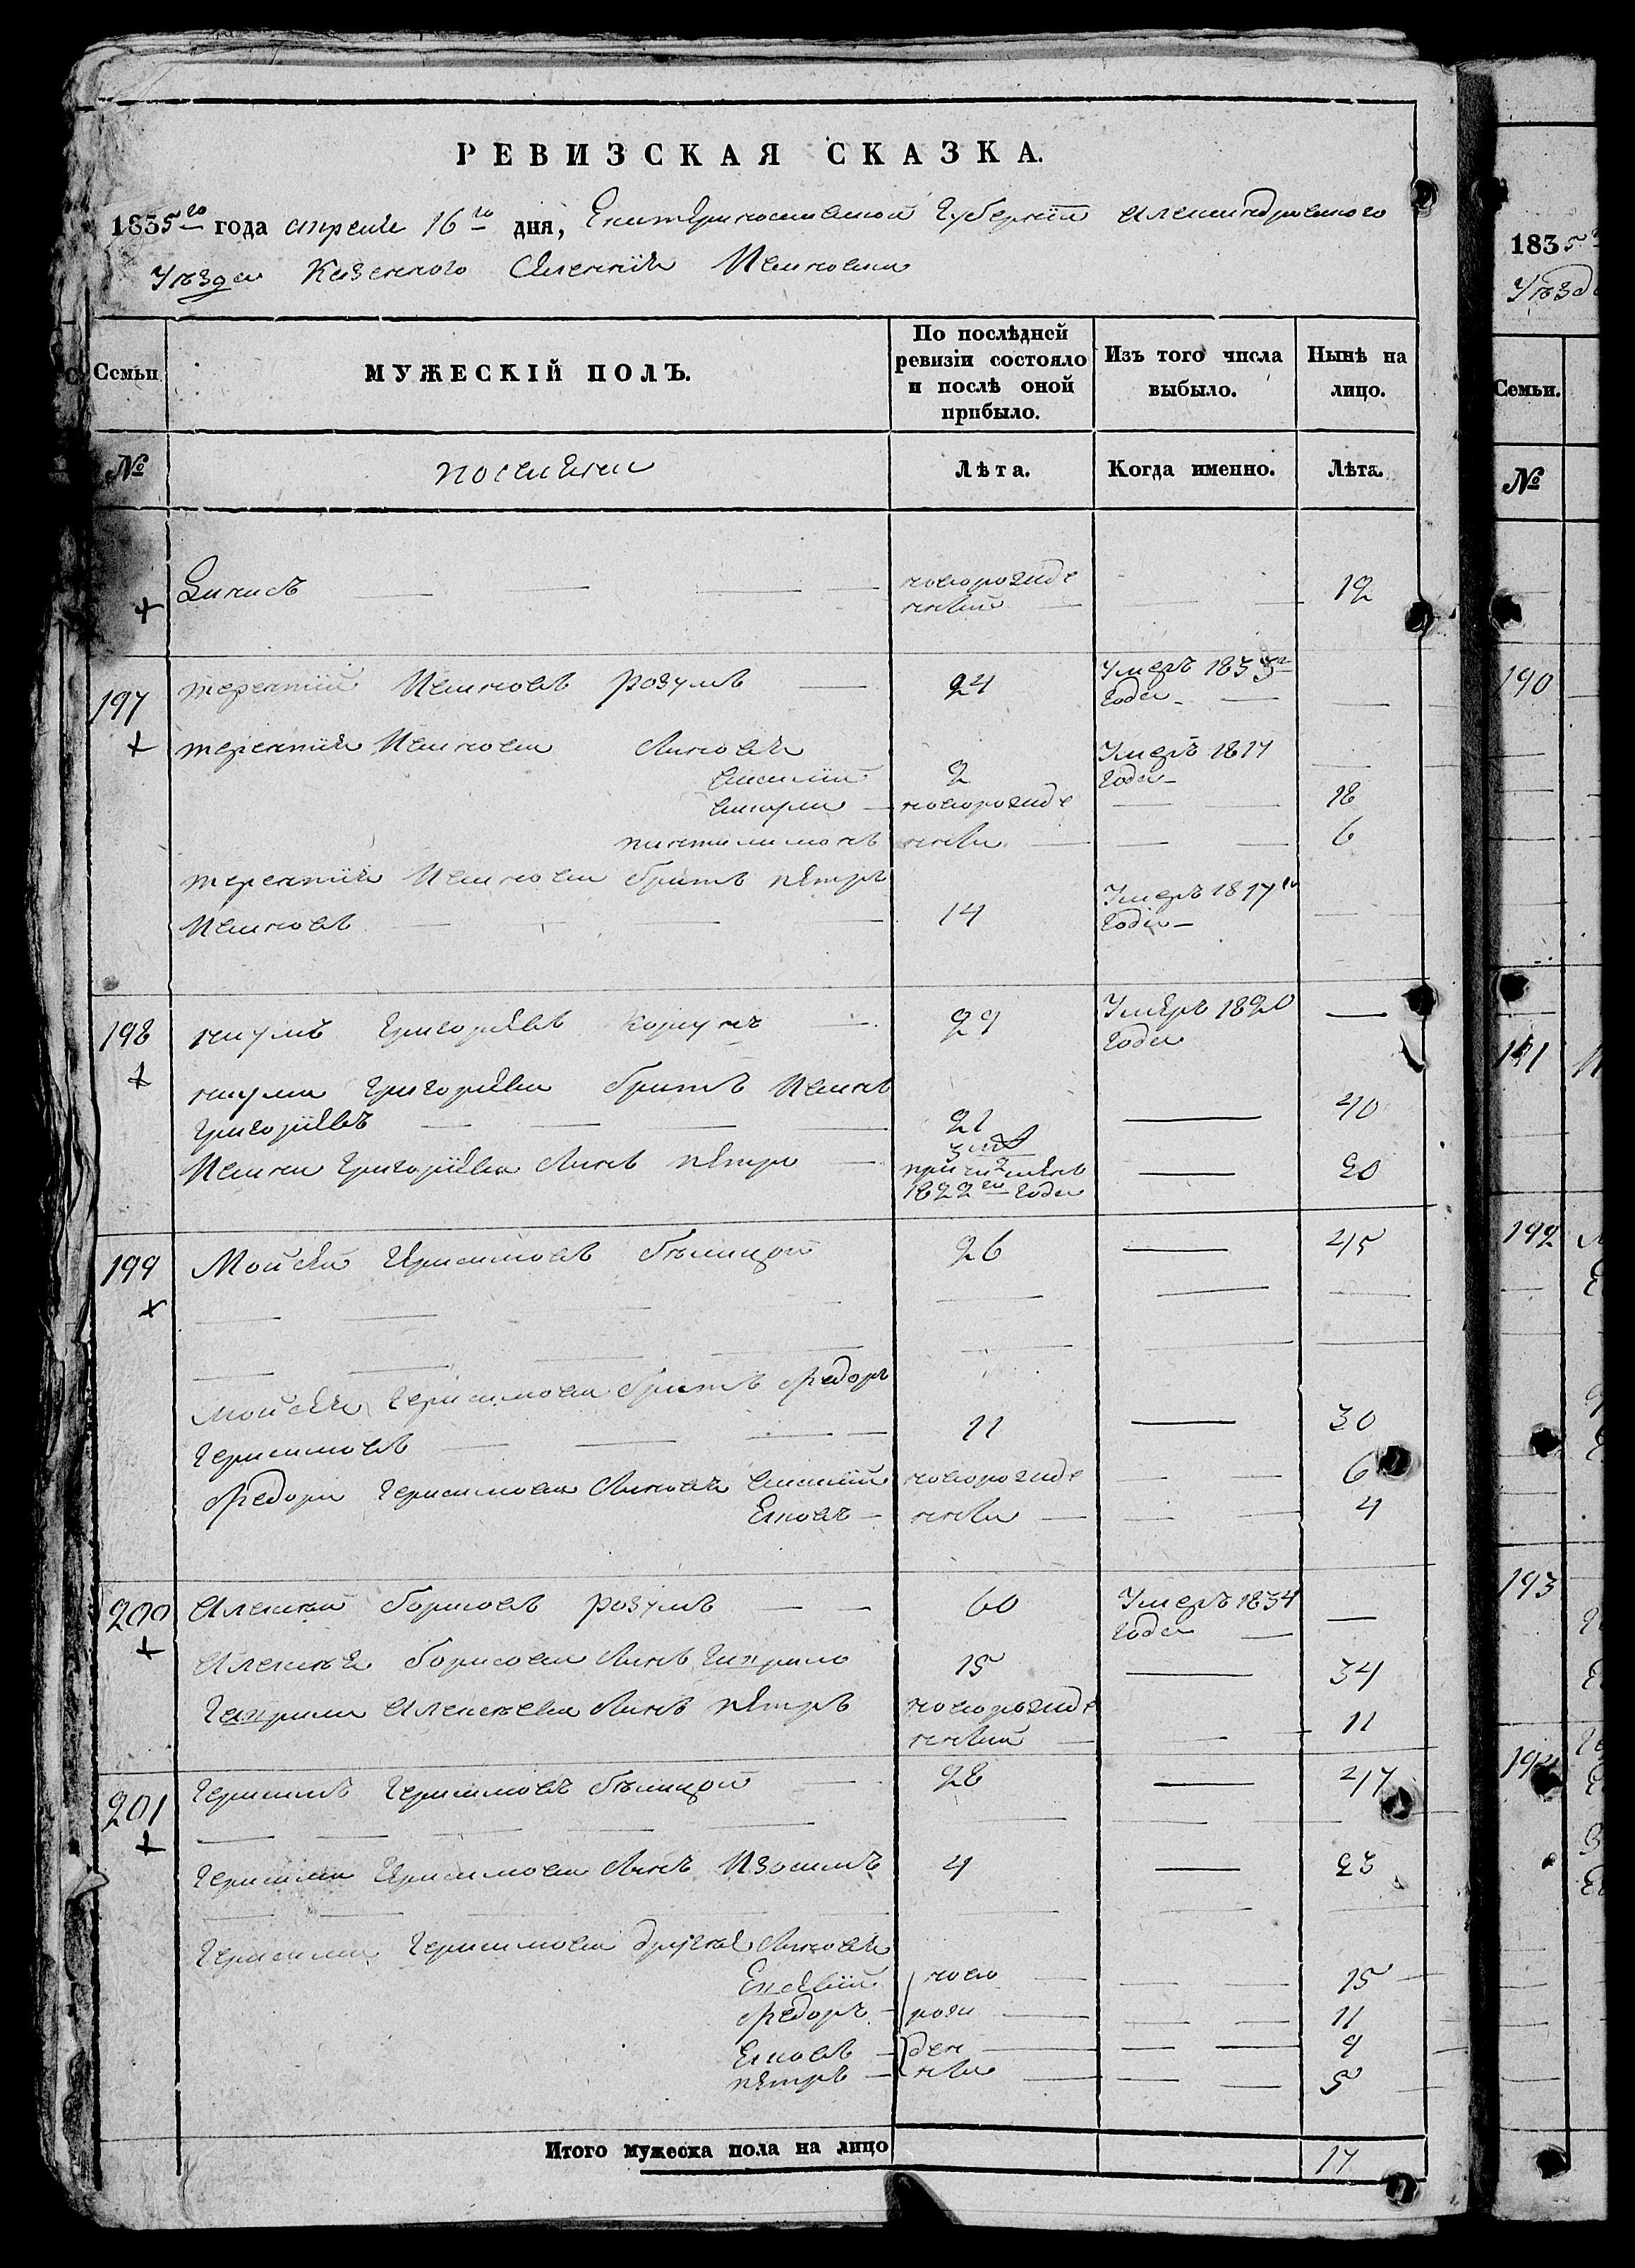 РЕВИЗСКАЯ СКАЗКА.
1835го года апреля 16го дня, Екатеринославской Губернiи Александровского
Уѣзда Казенного Селенiя Ивановки
Семьи
МУЖЕСКIЙ ПОЛЪ.
По послѣдней ревизiи состояло и послѣ оной прибыло.
Изъ того числа выбыло.
Нынѣ на лицо.
№
поселяне
Лѣта.
Когда именно.
Лѣта.
Денисъ новорожденный 12
197 терентiй Ивановъ розумъ 24 Умеръ 1833го Года
терентiя Иванова Сыновья
василiй 2 Умеръ 1817 Года
новорожде 18
пантилимонъ нные 6
терентiя Иванова братъ петръ
Ивановъ 14 Умеръ 1817го Года
198 наумъ Григорьевъ 29 Умеръ 1820 Года —
наума Григорьева братъ Иванъ
Григорьевъ 21 — 40
Ивана Григорьева Сынъ петръ — 20
1822го Года
199 Мойсей Герасимовъ бѣлицкой 26 — 45
Мойсея Герасимова братъ федоръ
Герасимовъ 11 — 30
федора Герасимова Сыновья василiй новорожде 6
Яковъ нные 4
200 Алексей борисовъ розумъ 60 Умеръ 1834 Года —
Алексея борисова Сынъ Гаврило 15 — 34
Гаврила Алексеева Сынъ петръ новорожденный 11
201 Герасимъ Герасимовъ бѣлицкой 28 — 47
Герасима Герасимова Сынъ Изосимъ 4 — 23
Герасима Герасимова другие Сыновья
ново 15
федоръ рож 11
Яковъ ден 9
петръ ные 5
Итого мужеска пола на лицо 17
1835
Уѣзд
Семьи.
№
190
191
192
193
194